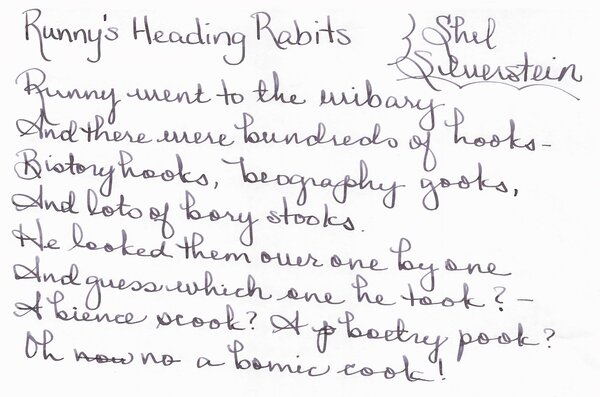 Runny's Heading Rabits } Shel Silverstein
Runny went to the wibary
And there were bundreds of hooks-
Bistory hooks, beography gooks,
And lots of bory stooks.
He looked them over one by one
And guess which one he took? -
A bience scook? A p boetry pook?
Oh now no a bomic cook!